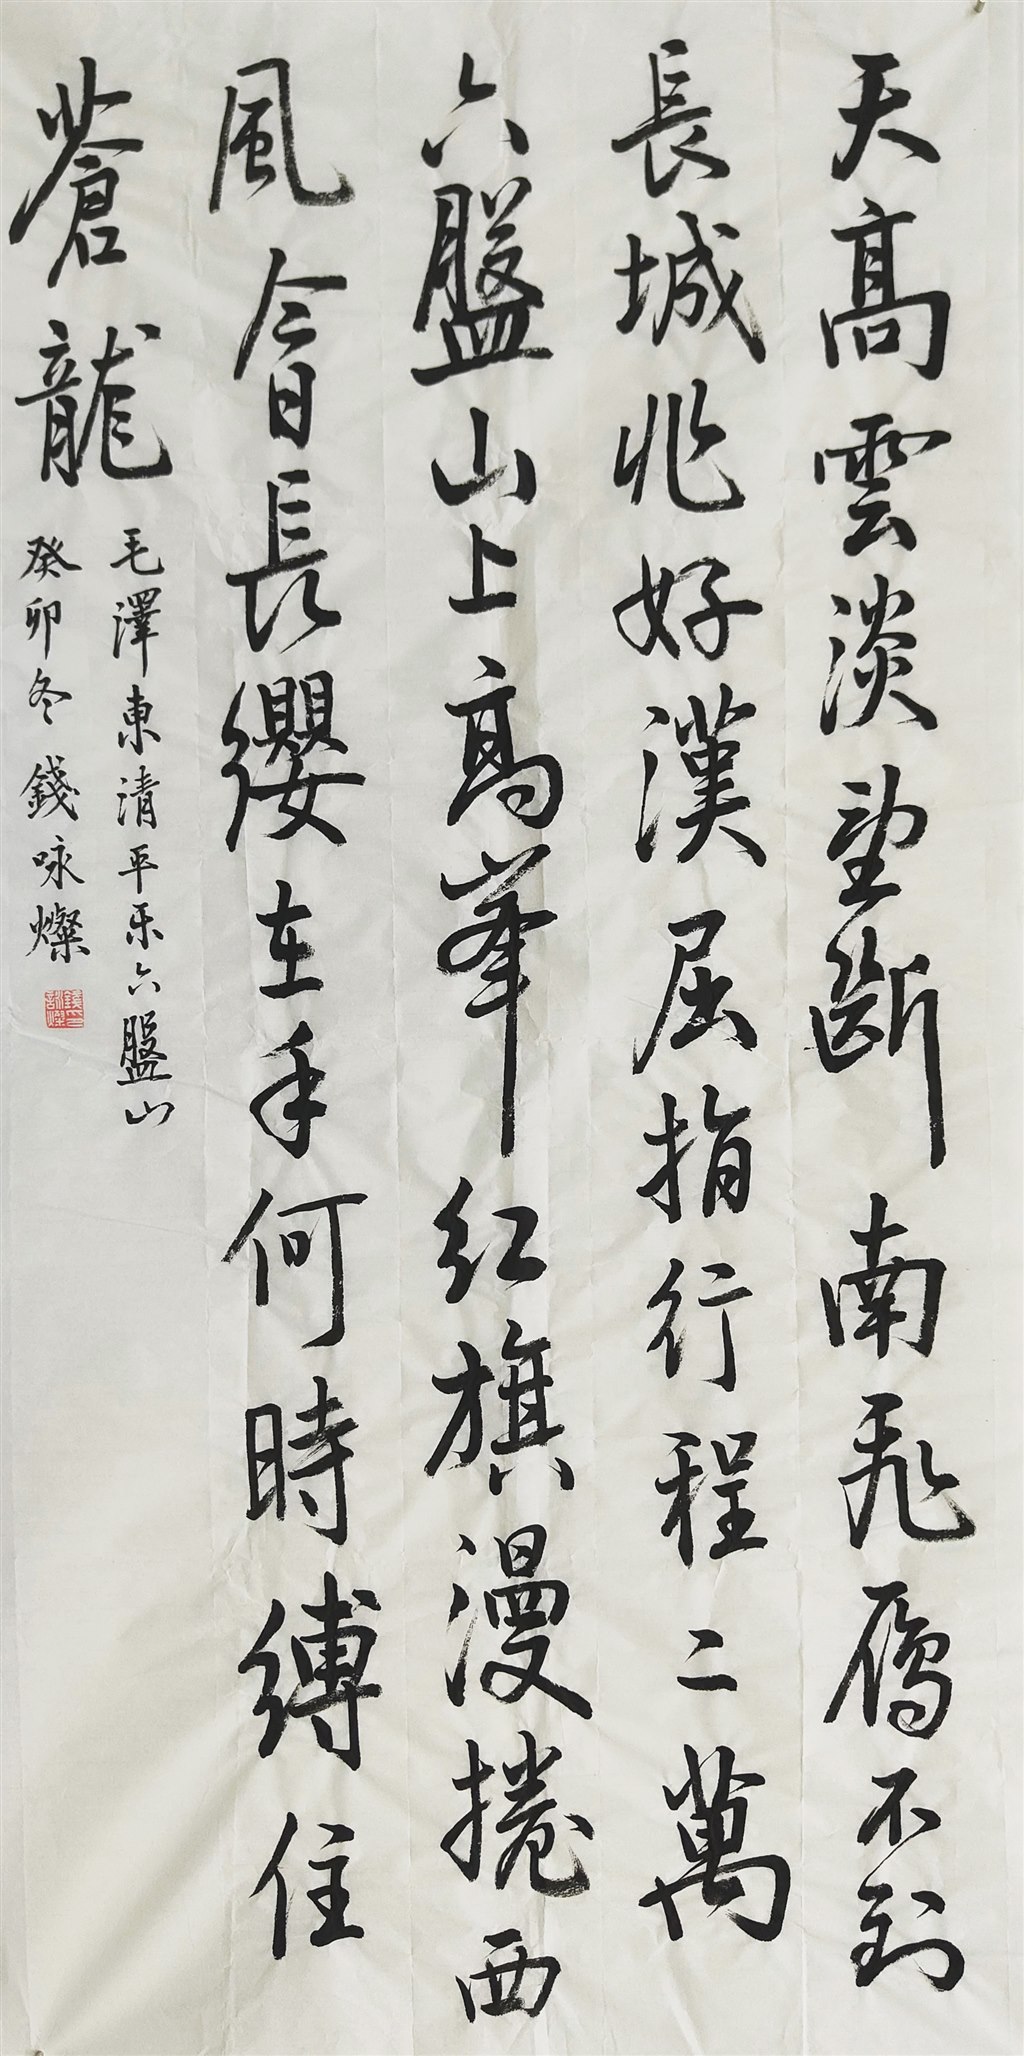 天髙雲淡望斷南飛雁不到
長城非好漢屈指行程二萬
六盤山上高峯红旗漫捲西
風今日長纓在手何時縛住
蒼龍
毛澤東清平乐六盤山
癸卯冬錢咏燦